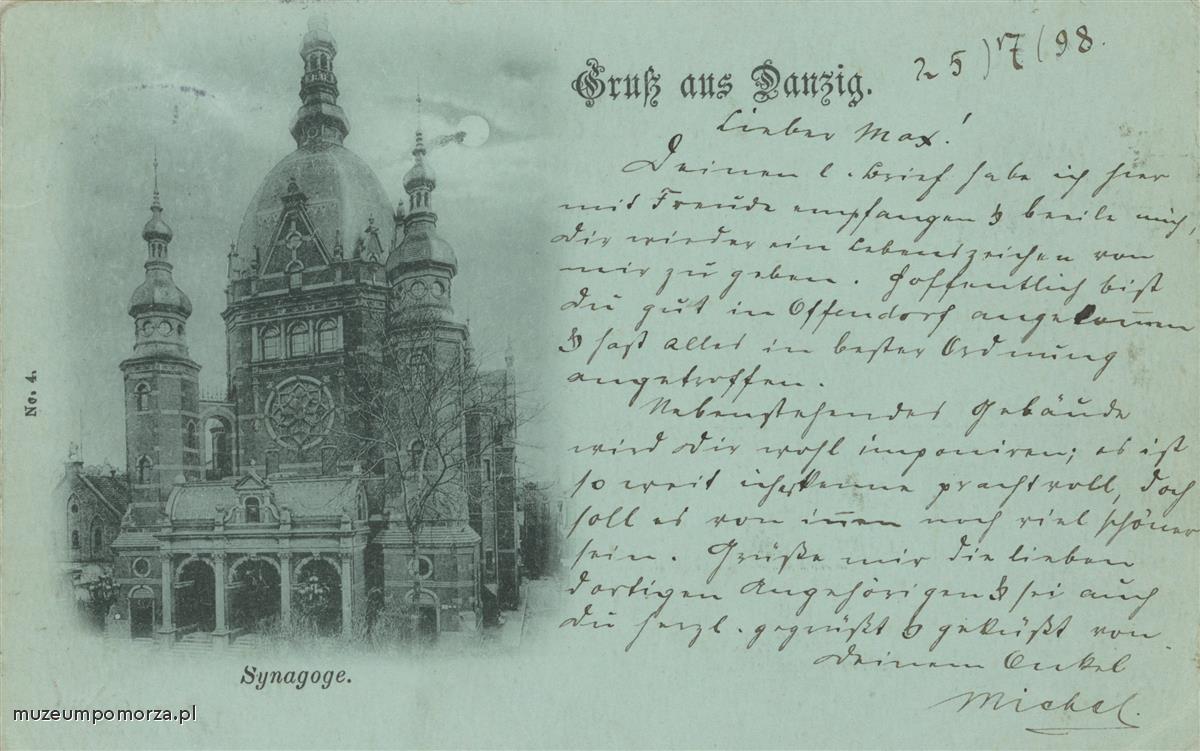 Gruß aus Danzig.
25)7(98.
Lieber Max!
Deinen l. Brief habe ich hier
mit Freude empfangen & beeile mich,
Dir wieder ein Lebenszeichen von
mir zu geben. Hoffentlich bist
Du gut in Offendorf angekom̅en
& hast Alles in bester Ordnung
angetroffen.
Nebenstehendes Gebäude
wird Dir wohl imponiren; es ist
so weit ich es kenne prachtvoll, doch
soll es von in̅en noch viel schöner
sein. Grüße mir die lieben
dortigen Angehörigen & sei auch
Du herzl. gegrüßt & geküßt von
Deinem Onkel
Michel.
No. 4.
Synagoge.
muzeumpomorza.pl